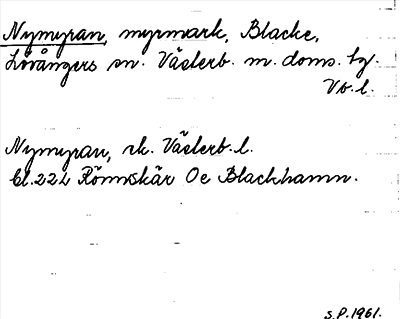 Nymyran, myrmark, Blacke,
Lövångers sn. Västerb. m. doms. bg.
Vb. l.
Nymyran, rk. Västerb. l.
Bl. 222 Rönnskär Oe Blackhamn.
S.P. 1961.